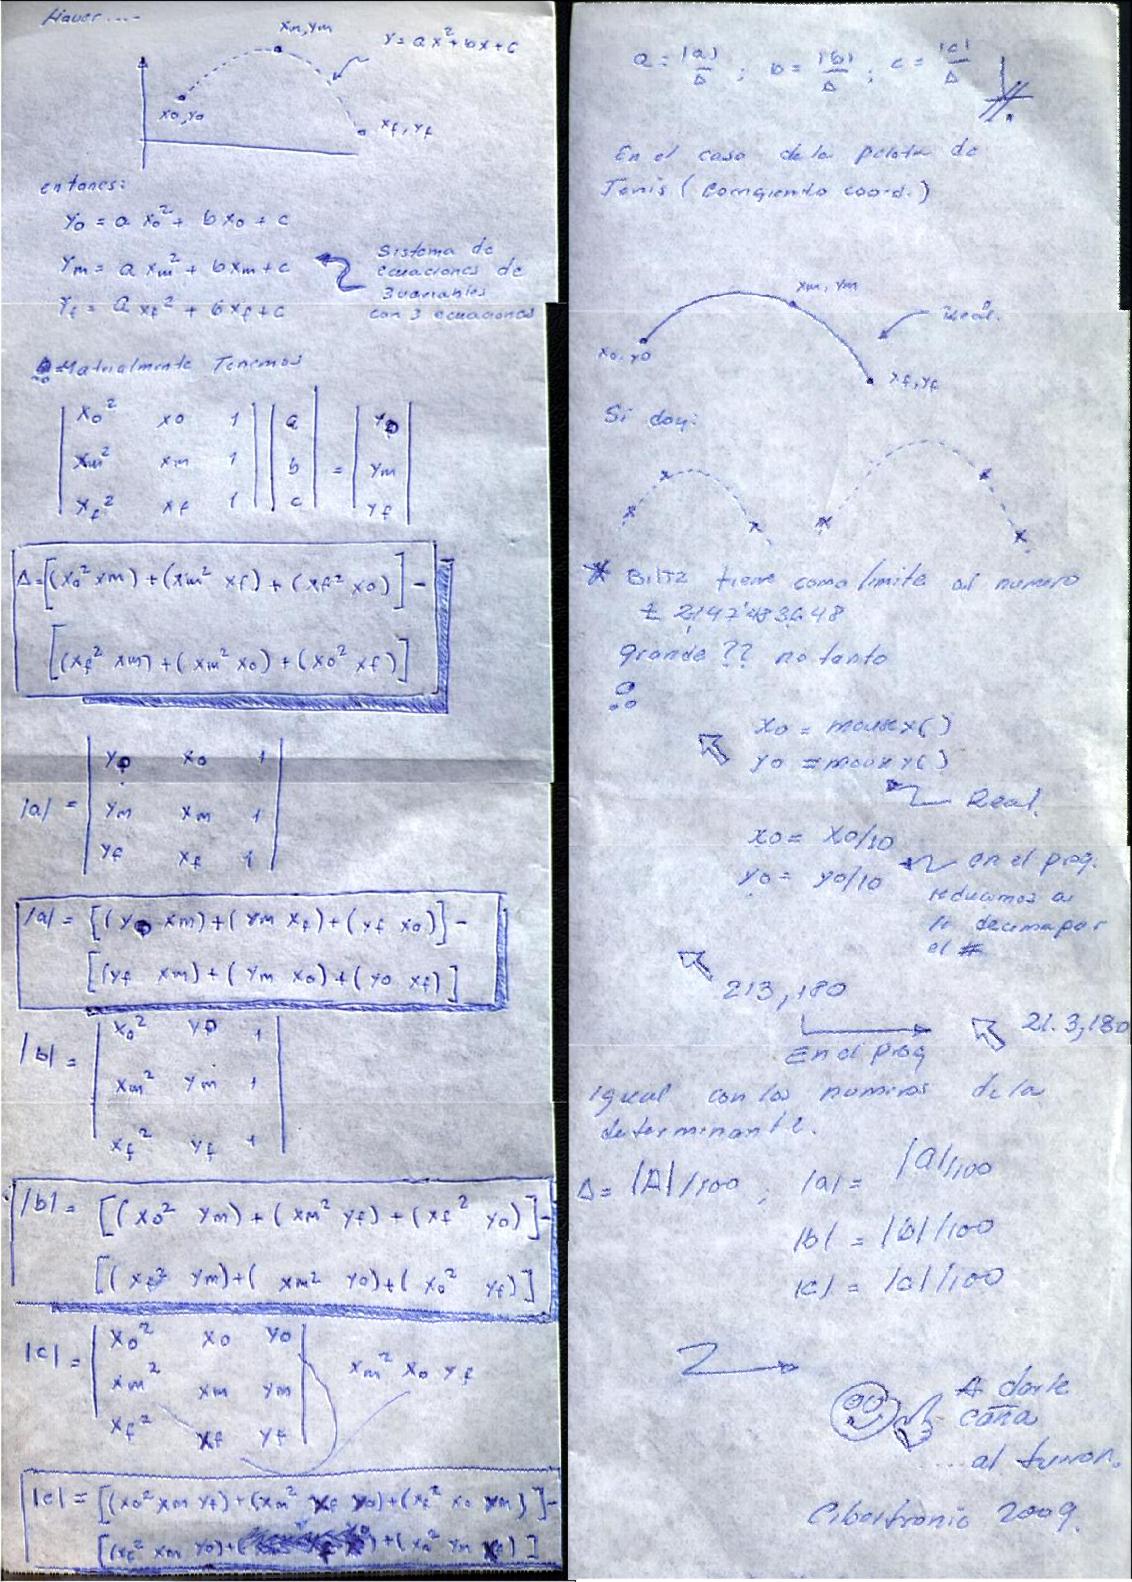 xm,ym
y = ax² + bx + c
x0,y0
xf, yf
entonces:
y0 = a x0² + b x0 + c
ym = a xm² + b xm + c
yf = a xf² + b xf + c
Sistema de
ecuaciones de
3 variables
con 3 ecuaciones
Matricialmente Tenemos
| x0² x0 1 | | a | | y0 |
| xm² xm 1 | | b | = | ym |
| xf² xf 1 | | c | | yf |
Δ = [(x0² xm) + (xm² xf) + (xf² x0)] -
[(xf² xm) + (xm² x0) + (x0² xf)]
| y0 x0 1 |
|a| = | ym xm 1 |
| yf xf 1 |
|a| = [(y0 xm) + (ym xf) + (yf x0)] -
[(yf xm) + (ym x0) + (y0 xf)]
| x0² y0 1 |
|b| = | xm² ym 1 |
| xf² yf 1 |
|b| = [(x0² ym) + (xm² yf) + (xf² y0)] -
[(xf² ym) + (xm² y0) + (x0² yf)]
| x0² x0 y0 |
|c| = | xm² xm ym |
| xf² xf yf |
xm² x0 yf
|c| = [(x0² xm yf) + (xm² xf y0) + (xf² x0 ym)] -
[(xf² xm y0) + (
a = |a|/Δ ; b = |b|/Δ ; c = |c|/Δ
En el caso de la pelota de
Tenis (Corrigiendo coord.)
xm, ym
Real.
x0, y0
xf, yf
Si doy:
* Blitz tiene como limite al numero
± 2,147'483,648
grande ?? no tanto
x0 = mousex()
y0 = mousey()
Real.
x0 = x0/10
y0 = y0/10
en el prog.
reducimos a
la decima por
el #
213, 180
En el prog
21.3, 180
Igual con los numeros de la
determinante.
Δ = |A|/100 ; |a| = |a|/100
|b| = |b|/100
|c| = |c|/100
A darle
caña
... al turron.
Cibertronic 2009.